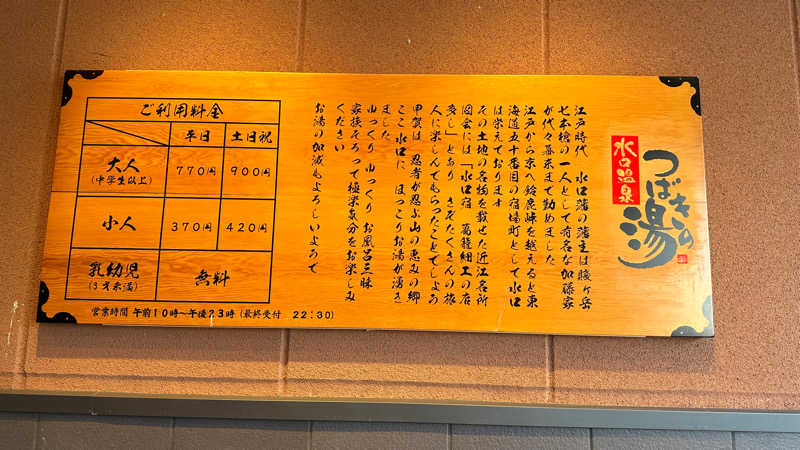 水口温泉
つばきの湯
江戸時代 水口藩の藩主は賤ヶ岳
七本槍の一人として有名な加藤家
が代々幕末まで勤めました
江戸から京へ鈴鹿峠を越えると東
海道五十番目の宿場町として水口
は栄えております
その土地の名物を載せた近江名所
図会には「水口宿 葛籠細工の店
多し」とあり きぞたくさんの旅
人に楽しんでもらったことでしょう
甲賀は 忍者が忍ぶ山の恵みの郷
ここ水口に ほっこりお湯が湧き
ました
ゆっくり ゆっくり お風呂三昧
家族そろって極楽気分をお楽しみ
ください
お湯の加減もよろしいようで
ご利用料金
平日 土日祝
大人 770円 900円
(中学生以上)
小人 370円 420円
乳幼児 無料
(3才未満)
営業時間 午前10時～午後23時(最終受付 22:30)